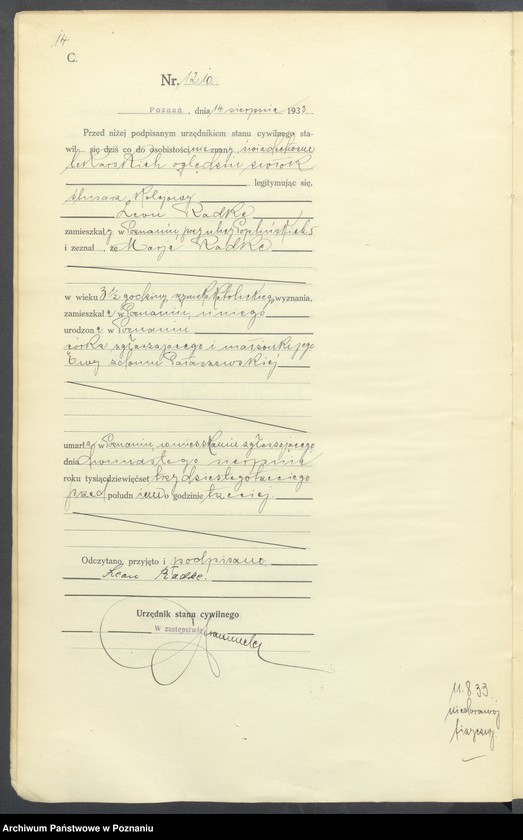 14
C.
Nr. 1210.
Poznań, dnia 14 sierpnia 1933
Przed niżej podpisanym urzędnikiem stanu cywilnego sta-
wił się dziś co do osobistości nieznany, świadectwem
lekarskich oględzin zwłok
legitymując się,
ślusarz kolejowy
Leon Radke
zamieszkały w Poznaniu, przy ulicy 5
i zeznał, że Marja Radke
w wieku 3½ godziny, rzymsko katolickiego wyznania,
zamieszkała w Poznaniu, u niego
urodzona w Poznaniu
córka zgłaszającego i małżonki jego
Ewy z domu Pataszewskiej
umarła w Poznaniu, w mieszkaniu zgłaszającego
dnia dwunastego sierpnia
roku tysiącdziewięćset trzydziestego trzeciego
przed południem o godzinie trzeciej.
Odczytano, przyjęto i podpisano.
Leon Radke.
Urzędnik stanu cywilnego
W zastępstwie
11.8.33
Archiwum Państwowe w Poznaniu